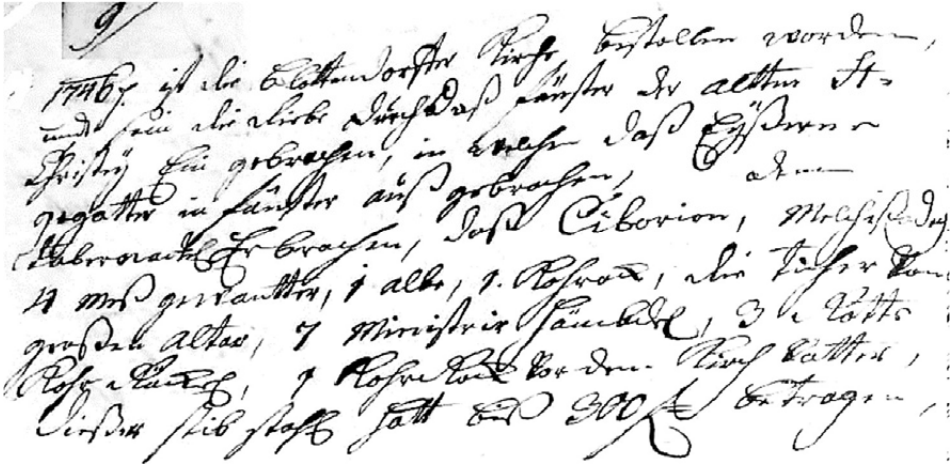 9
1746 ist die Blottendorffer Kirche bestollen worden,
undt sein die diebe durch daß fänster der altten St-
Christeÿ Ein gebrochen, in welcher daß Eÿßerne
gegatter in fänster auß gebrochen, den
tabernackel Erbrochen, daß Ciborion, Melchisedeg
4 mes gewantter, 1 albe, 1. Kohrock, die ticher von
großen altar, 7 Ministrir hämbdel, 3 Rotte
Kohr Röckel, 1 Kohr Rock vor den Kirch Vatter,
dießer dib stahl hatt bis 300 f betragen,